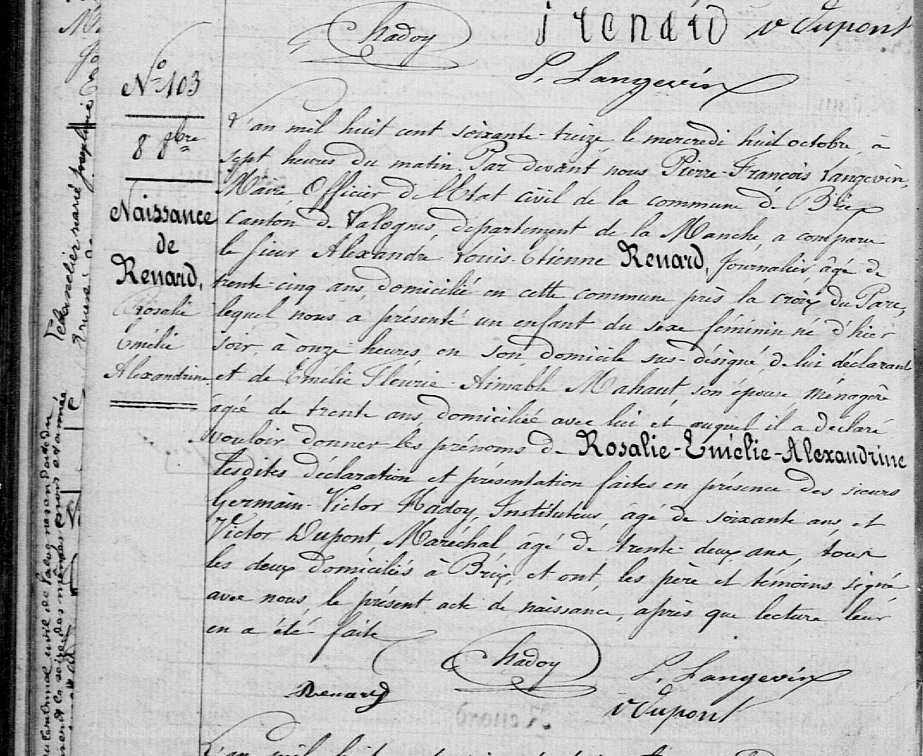 hadoy
renard
v Dupont
P. Langevin
No 103
8 8bre
Naissance
de
Renard,
Rosalie
Emélie
Alexandrine
L'an mil huit cent soixante-treize, le mercredi huit octobre, à
sept heures du matin. Par devant nous Pierre-François Langevin,
Maire Officier de l'Etat civil de la commune de Brix
canton de Valognes, département de la Manche, a comparu
le sieur Alexandre Louis-Etienne Renard, journalier âgé de
trente-cinq ans domicilié en cette commune près la croix du Parc,
lequel nous a présenté un enfant du sexe féminin né d'hier
soir, à onze heures, en son domicile sus-désigné, de lui déclarant
et de Emélie Fleurie-Aimable Mahaut, son épouse ménagère
âgé de trente ans, domiciliée avec lui et auquel il a déclaré
vouloir donner les prénoms de Rosalie-Emélie-Alexandrine
lesdites déclaration et présentation faites en présence des sieurs
Germain-Victor Hadoy, Instituteur, âgé de soixante ans et
Victor Dupont Maréchal, âgé de trente-deux ans, tous
les deux domiciliés à Brix, et ont les père et témoins signé
avec nous, le présent acte de naissance, après que lecture leur
en a été faite
Renard
hadoy
P. Langevin
v Dupont